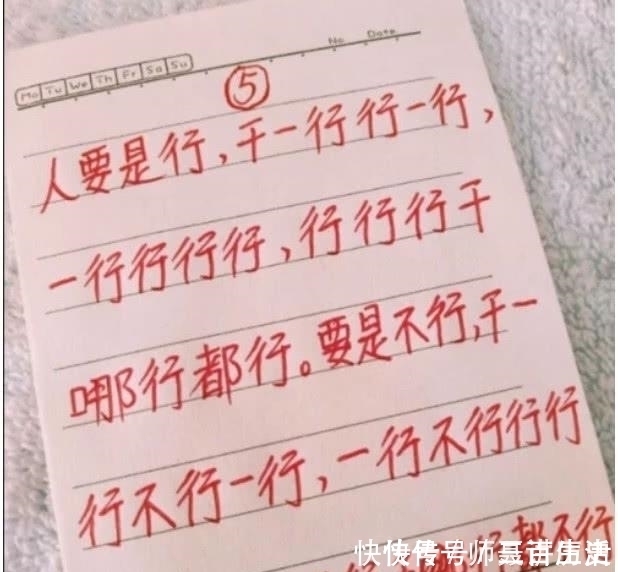 No Date
Mo Tu We Th Fr Sa Su
⑤
人要是行，干一行行一行，
一行行行行，行行行干
哪行都行。要是不行，干一
行不行一行，一行不行行行
不行